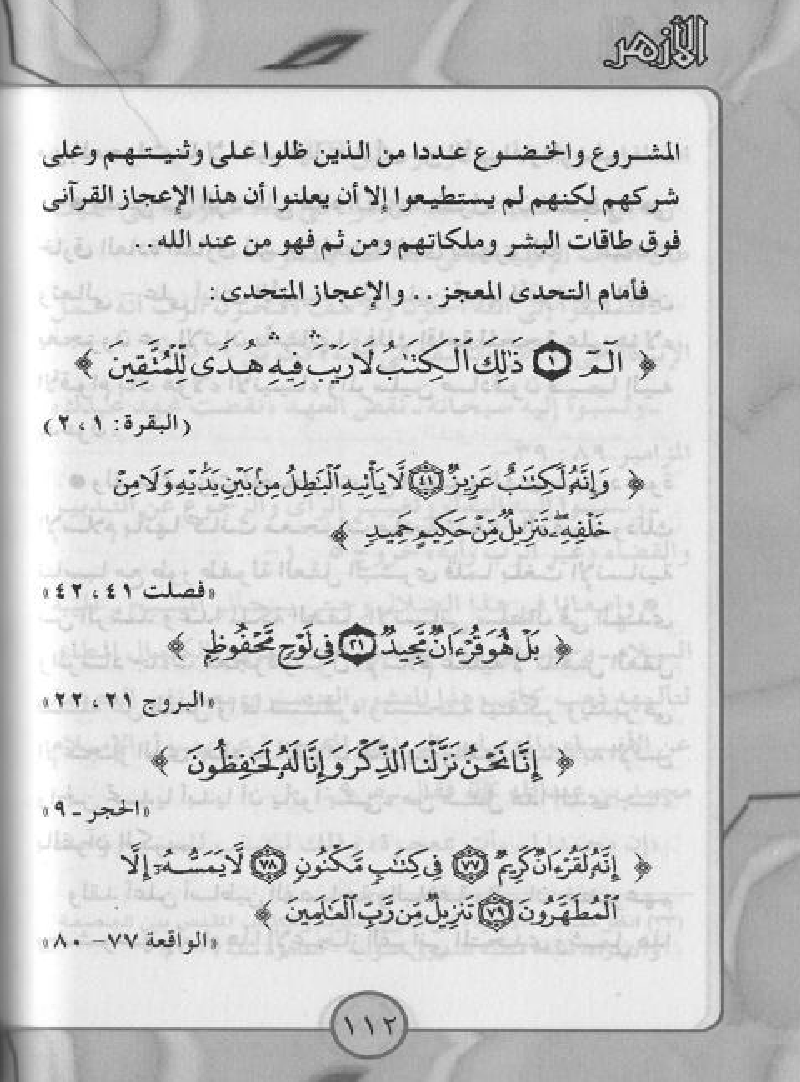 الأزهر
المشروع والخضوع عددا من الذين ظلوا على وثنيتهم وعلى
شركهم لكنهم لم يستطيعوا إلا أن يعلنوا أن هذا الإعجاز القرآنى
فوق طاقات البشر وملكاتهم ومن ثم فهو من عند الله..
فأمام التحدى المعجز.. والإعجاز المتحدى:
﴿ الٓمٓ ١ ذَٰلِكَ ٱلْكِتَٰبُ لَا رَيْبَ ۛ فِيهِ ۛ هُدًى لِّلْمُتَّقِينَ ﴾
(البقرة: ١، ٢)
﴿ وَإِنَّهُۥ لَكِتَٰبٌ عَزِيزٌ ٤١ لَّا يَأْتِيهِ ٱلْبَٰطِلُ مِنۢ بَيْنِ يَدَيْهِ وَلَا مِنْ
خَلْفِهِۦ ۖ تَنزِيلٌ مِّنْ حَكِيمٍ حَمِيدٍ ﴾
«فصلت ٤١، ٤٢»
﴿ بَلْ هُوَ قُرْءَانٌ مَّجِيدٌ ٢١ فِى لَوْحٍ مَّحْفُوظٍ ﴾
«البروج ٢١، ٢٢»
﴿ إِنَّا نَحْنُ نَزَّلْنَا ٱلذِّكْرَ وَإِنَّا لَهُۥ لَحَٰفِظُونَ ﴾
«الحجر ـ ٩»
﴿ إِنَّهُۥ لَقُرْءَانٌ كَرِيمٌ ٧٧ فِى كِتَٰبٍ مَّكْنُونٍ ٧٨ لَّا يَمَسُّهُۥٓ إِلَّا
ٱلْمُطَهَّرُونَ ٧٩ تَنزِيلٌ مِّن رَّبِّ ٱلْعَٰلَمِينَ ﴾
«الواقعة ٧٧ – ٨٠»
١١٢